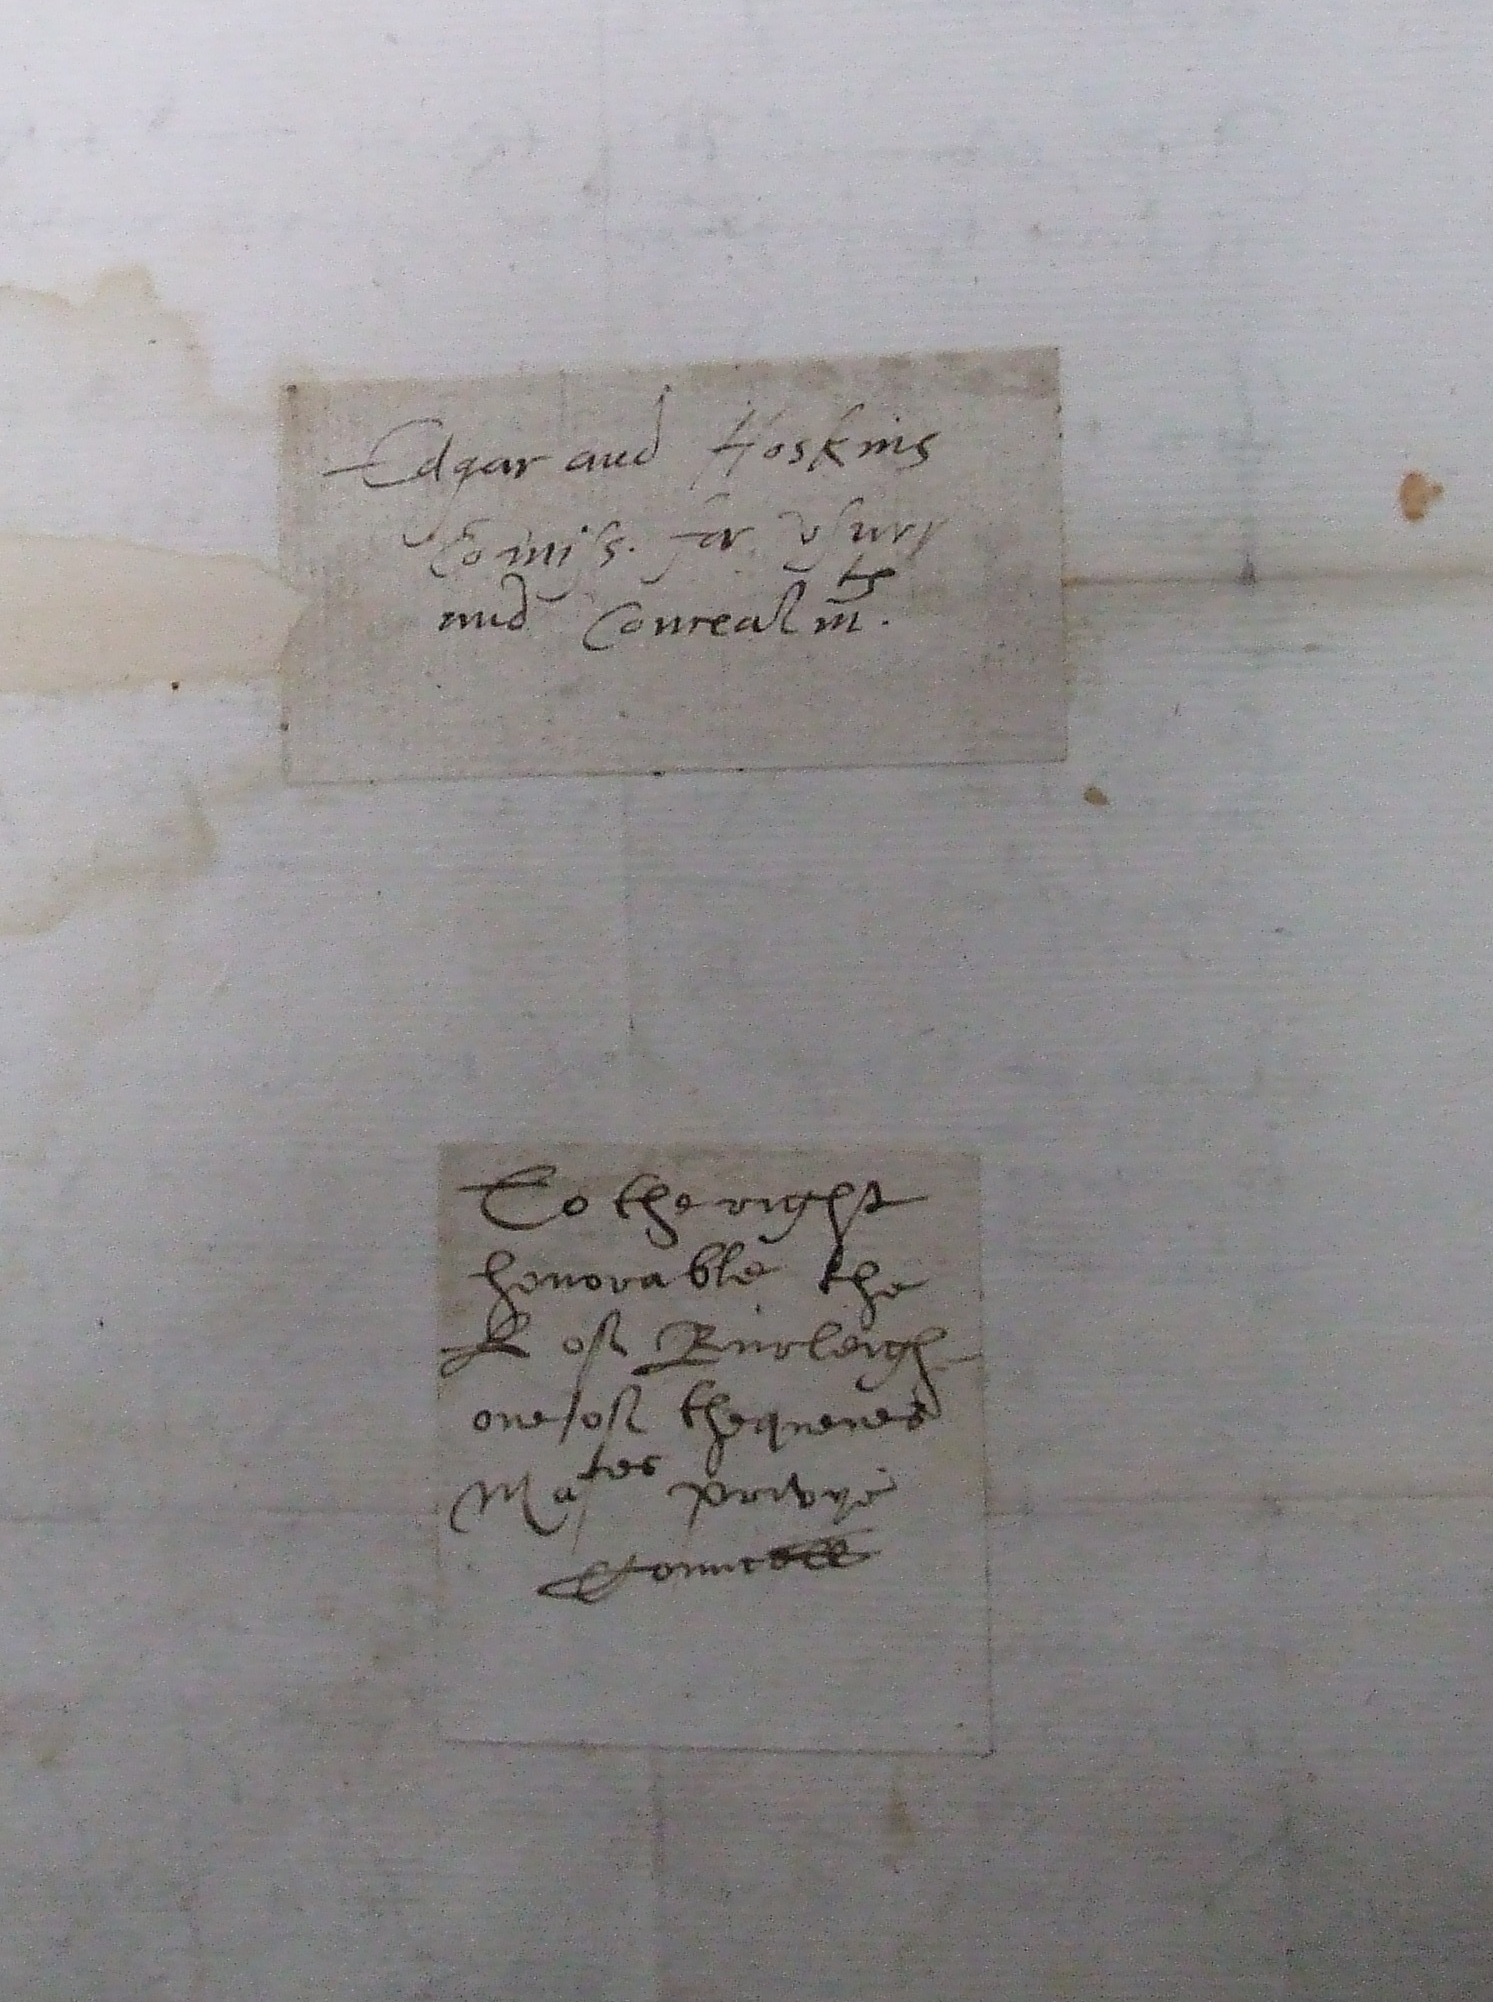 Edgar and Hoskins
Comiss. for vsury
and Concealmts.
To the right
honorable the
L of Burleigh
one of the quenes
Mates privye
Councell